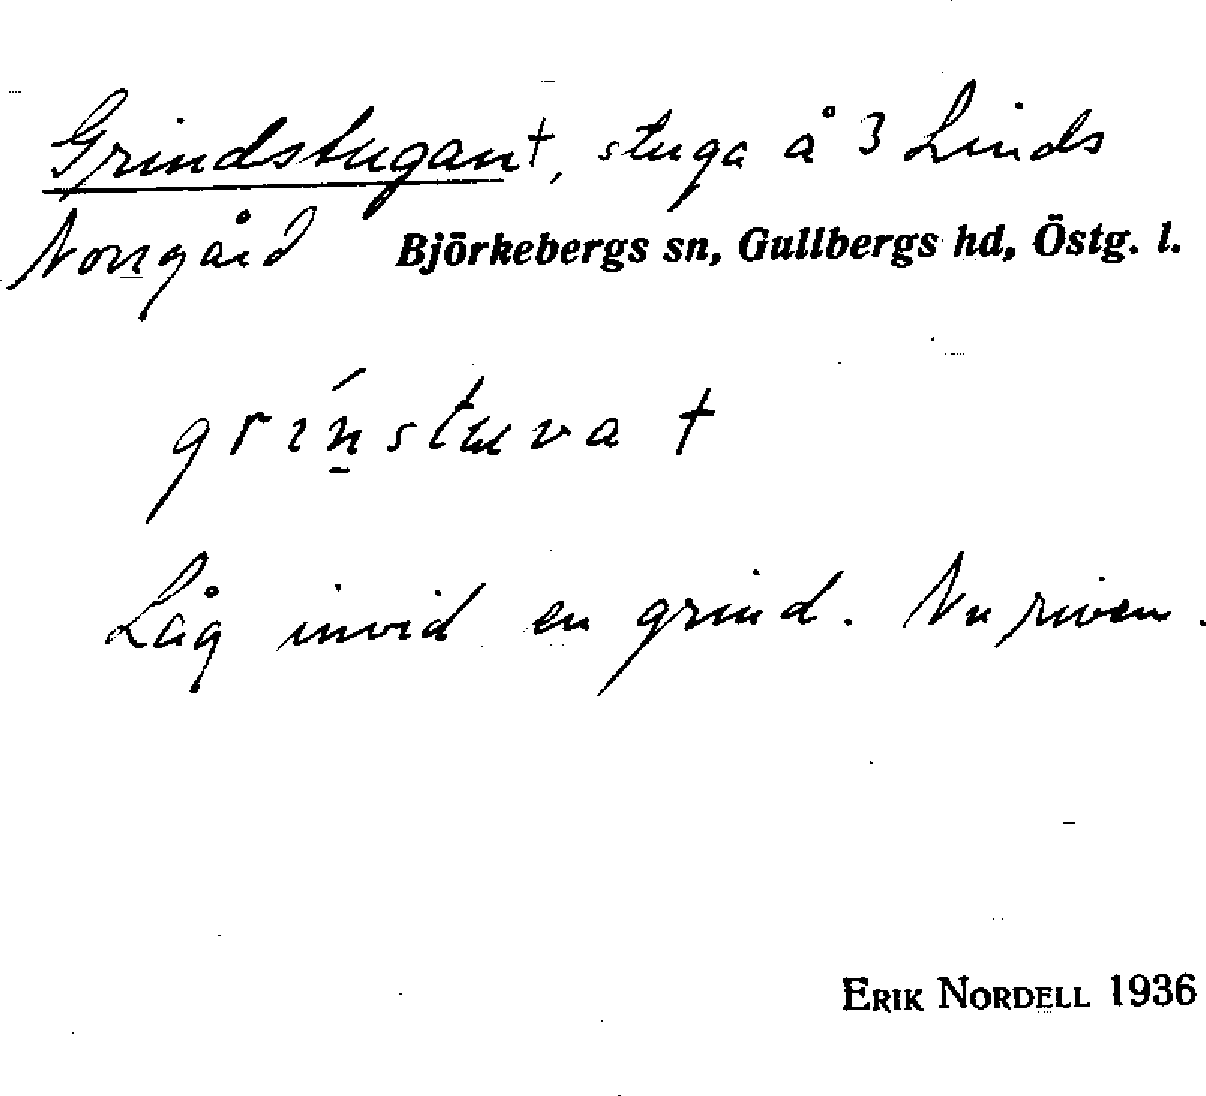 Grindstugan †, stuga å 3 Linds
Norrgård Björkebergs sn, Gullbergs hd, Östg. l.
grín̠stuva †
Låg invid en grind. Nu riven.
ERIK NORDELL 1936